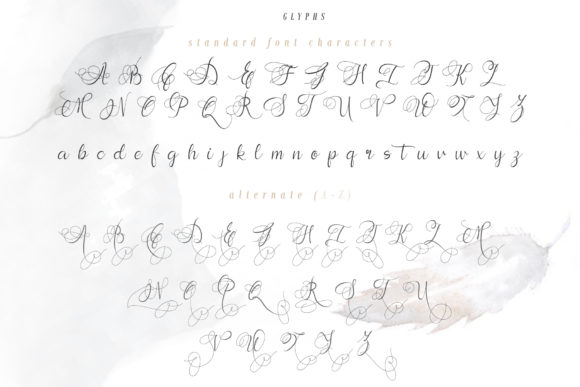 GLYPHS
standard font characters
A B C D E F G H I J K L
M N O P Q R S T U V W X Y Z
a b c d e f g h i j k l m n o p q r s t u v w x y z
alternate (A-Z)
A B C D E G H I J K L M
N O P Q R S T U
V W X Y Z